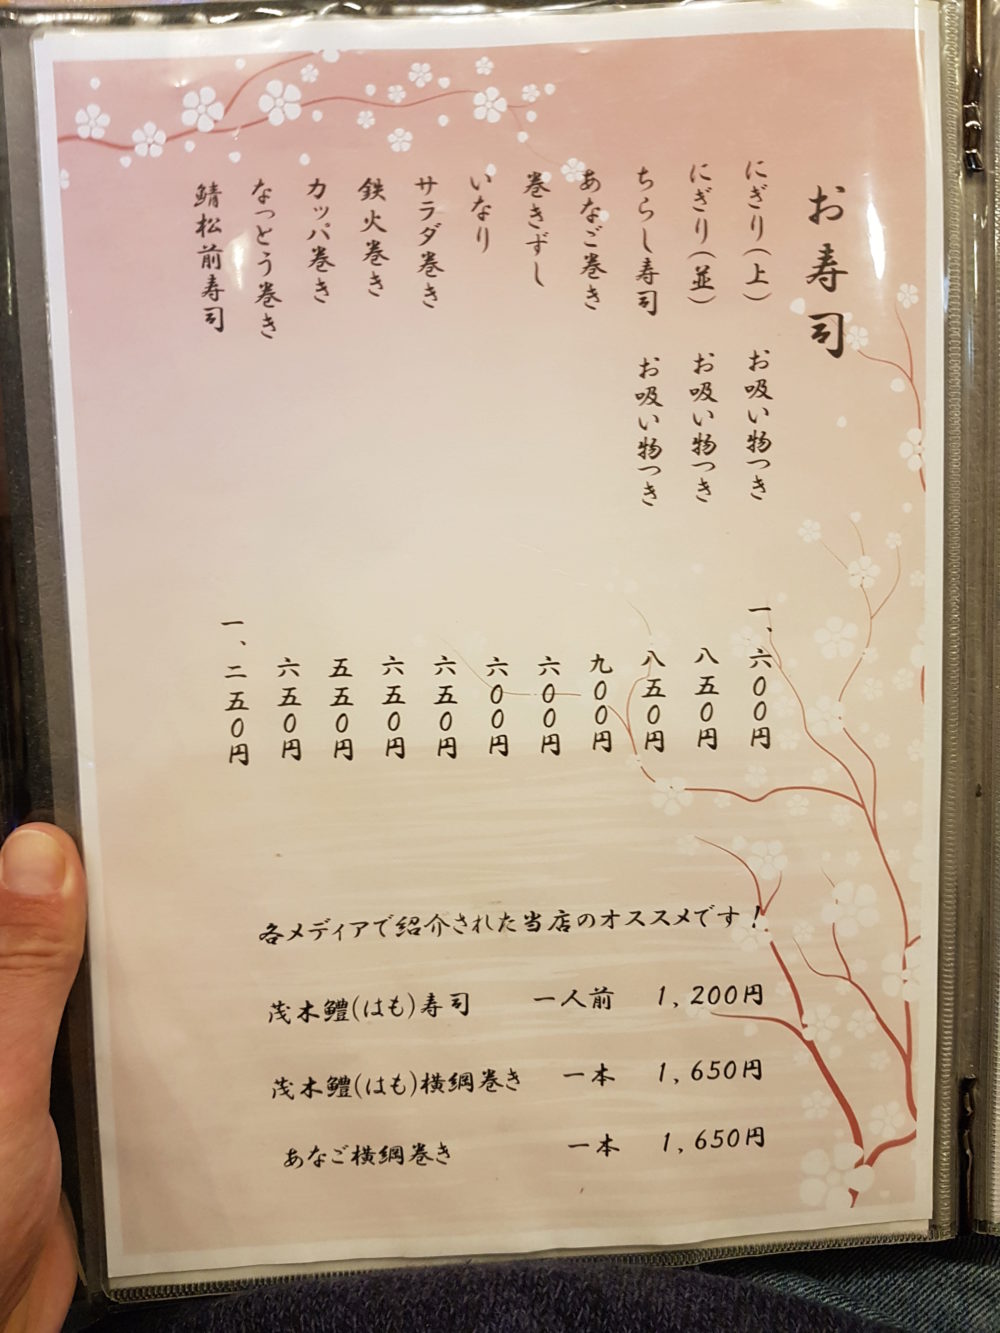 お寿司
にぎり(上) お吸い物つき 一、六００円
にぎり(並) お吸い物つき 八五０円
ちらし寿司 お吸い物つき 八五０円
あなご巻き 九００円
巻きずし 六００円
いなり 六００円
サラダ巻き 六五０円
鉄火巻き 六五０円
カッパ巻き 五五０円
なっとう巻き 六五０円
鯖松前寿司 一、二五０円
各メディアで紹介された当店のオススメです!
茂木鱧(はも)寿司 一人前 1,200円
茂木鱧(はも)横綱巻き 一本 1,650円
あなご横綱巻き 一本 1,650円